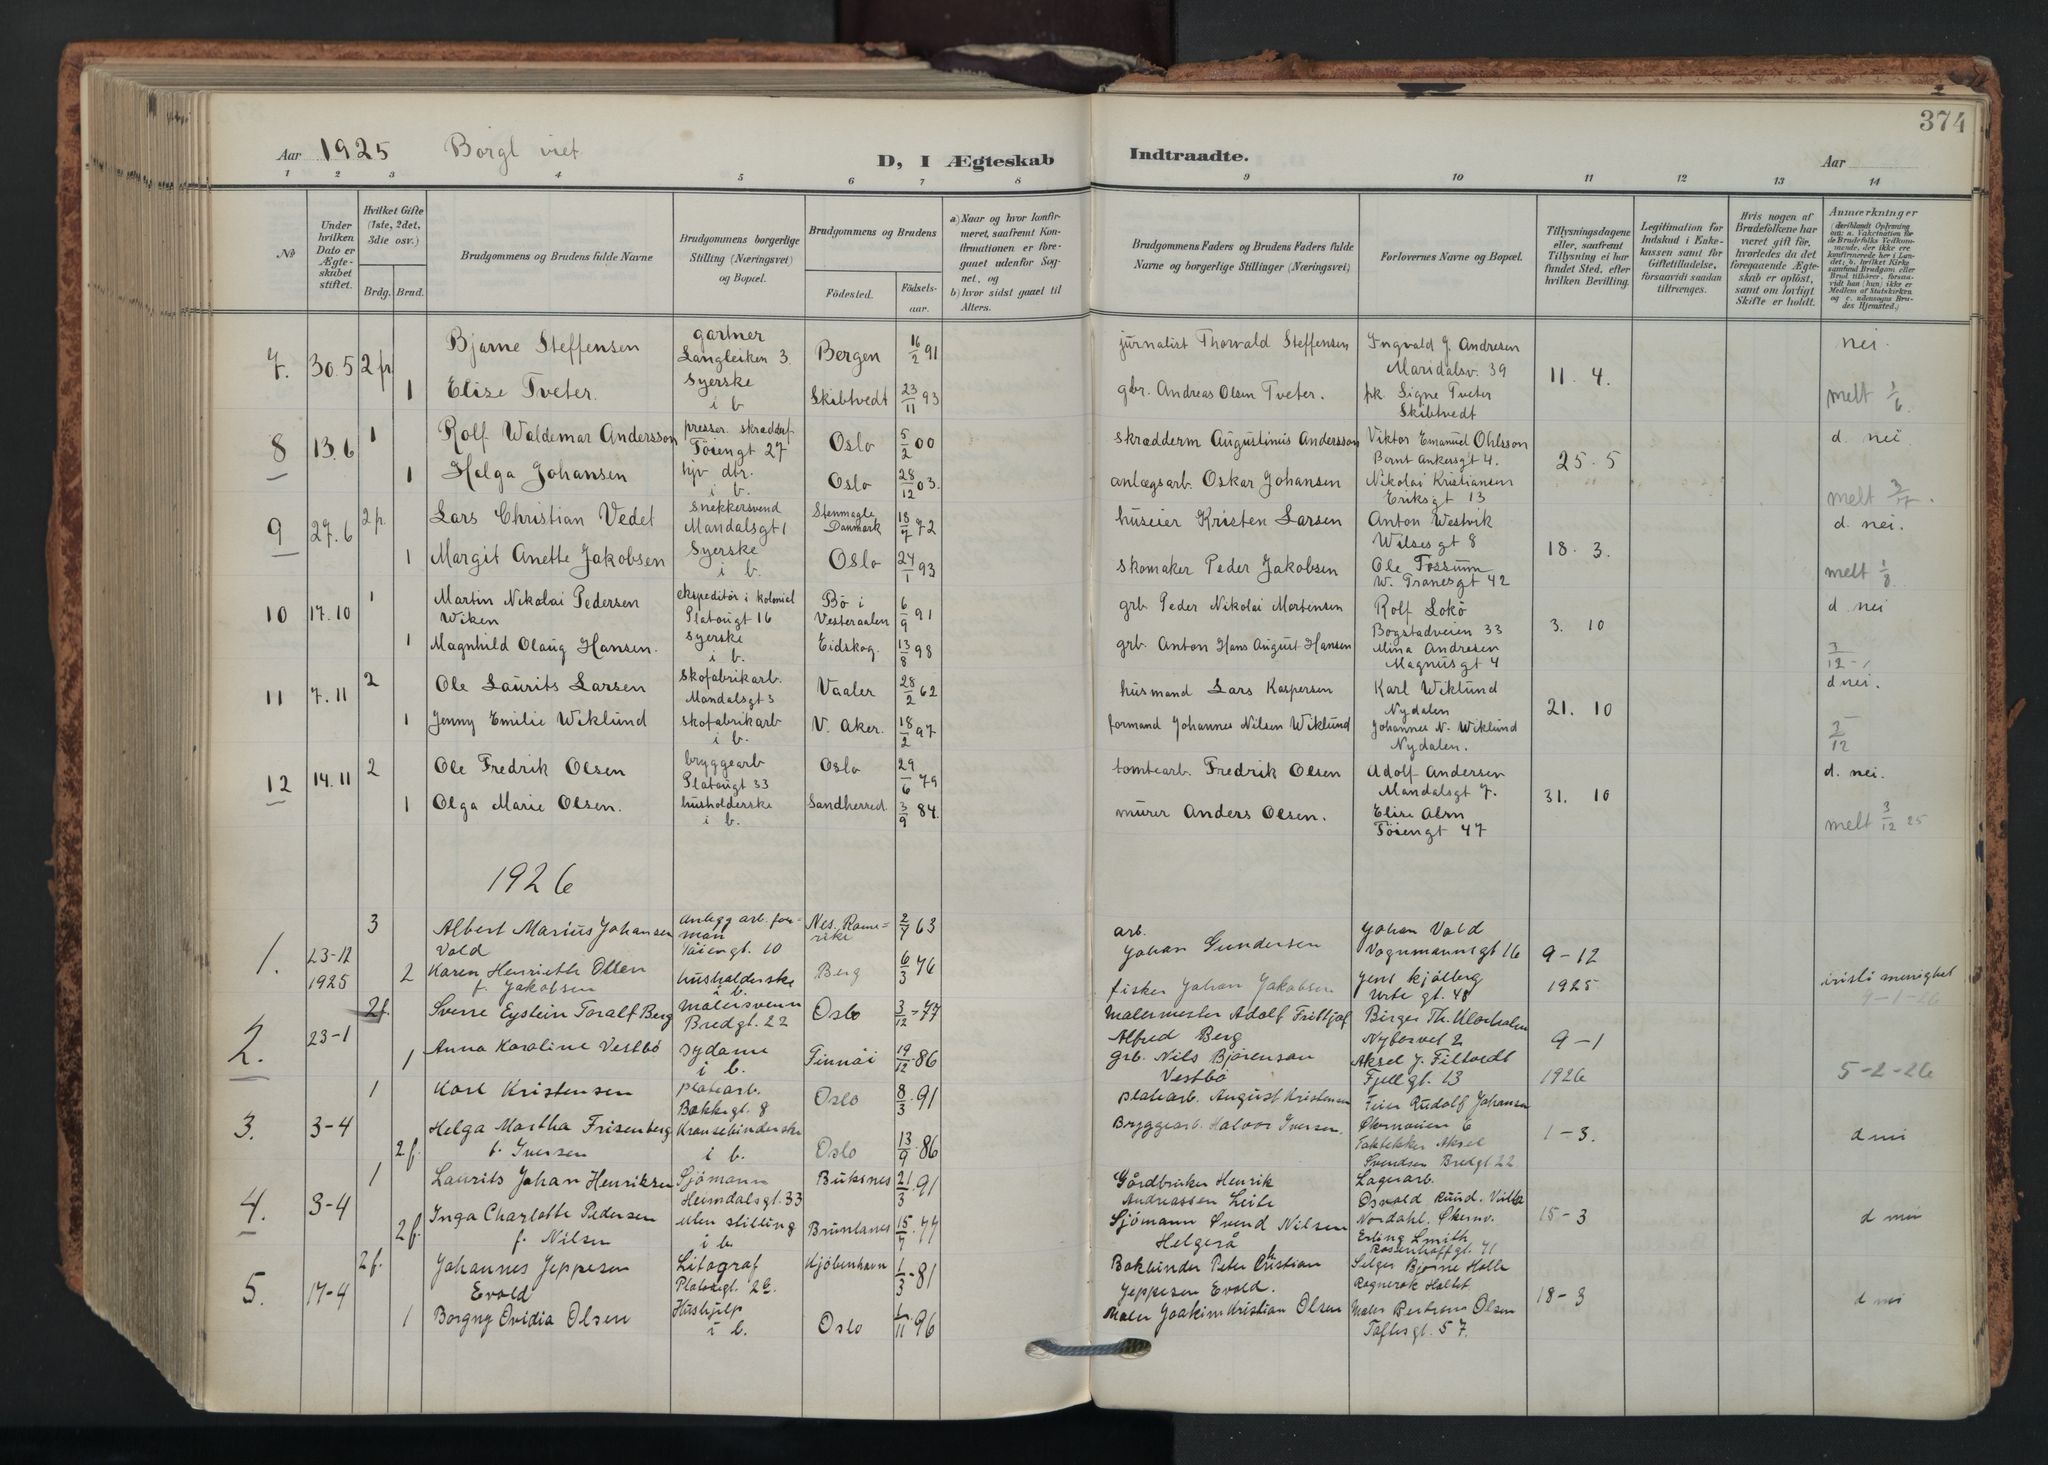 374
Aar 1925 Borgl viet D, I Ægteskab Indtraadte. Aar
1 2 3 4 5 6 7 8 9 10 11 12 13 14
№
Under hvilken Dato er Ægteskabet stiftet.
Hvilket Gifte (1ste, 2det, 3die osv.)
Brdg. Brud.
Brudgommens og Brudens fulde Navne
Brudgommens borgerlige Stilling (Næringsvei) og Bopæl.
Brudgommens og Brudens
Födested. Födselsaar.
a) Naar og hvor konfirmeret, saafremt Konfirmationen er foregaaet udenfor Sognet, og
b) hvor sidst gaaet til Alters.
Brudgommens Faders og Brudens Faders fulde Navne og borgerlige Stillinger (Næringsvei)
Forlovernes Navne og Bopæl.
Tillysningsdagene eller, saafremt Tillysning ei har fundet Sted, efter hvilken Bevilling.
Legitimation for Indskud i Enkekassen samt for Giftetilladelse, forsaavidt saadan tiltrænges.
Hvis nogen af Brudefolkene har været gift før, hvorledes da det foregaaende Ægteskab er oplöst, samt om lovligt Skifte er holdt.
Anmærkninger
(deriblandt Oplysning om: a. Vakcination for de Brudefolks Vedkommende, der ikke ere konfirmerede her i Landet; b. hvilket Kirkesamfund Brudgom eller Brud tilhörer, forsaavidt han (hun) ikke er Medlem af Statskirken og c. udensogns Brudes Hjemsted.)
7. 30.5 2 fr Bjarne Steffensen gartner Langleiken 3 Bergen 16/2 91 journalist Thorvald Steffensen Ingvald J. Andresen Maridalsv. 39 11. 4. nei.
1 Elise Tveter. Syerske i b Skibtvedt 23/11 93 gbr. Andreas Olsen Tveter. pk. Signe Tveter Skibtvedt melt 1/6.
8 13.6 1 Rolf Waldemar Andersson presser. skrædderf Töiengt 27 Oslo 5/2 00 skrædderm Augustinus Andersson Viktor Emanuel Ohlsson Bernt Ankersgt 4. 25. 5 d. nei.
1 Helga Johansen hjv dtr. i b. Oslo 28/12 03. anlægsarb. Oskar Johansen Nikolai Kristiansen Eriksgt 13 melt 3/7.
9 27.6 2 fr. Lars Christian Vedet snekkersvend Mandalsgt 1 Stenmagle Danmark 18/7 72 huseier Kristen Larsen Anton Westvik Wilsesgt 8 18. 3. d. nei.
1 Margit Anette Jakobsen Syerske i b. Oslo 24/1 93 skomaker Peder Jakobsen Ole Fossum W. Tranesgt 42 melt 1/8
10 17.10 1 Martin Nikolai Pedersen Wiken ekspeditör i kolonial Platougt 16 Bö i Vesteraalen 6/9 91 grb Peder Nikolai Mortensen Rolf Lokö Bogstadveien 33 3. 10 d. nei
1 Magnhild Olaug Hansen. syerske i b. Eidskog. 13/8 98 grb. Anton Hans August Hansen Mina Andresen Magnusgt 4 3/12
11 7.11 2 Ole Laurits Larsen skofabrikarb. Mandalsgt 3 Vaaler 28/2 62 husmand Lars Kaspersen Karl Wiklund Nydalen 21. 10 d nei.
1 Jenny Emilie Wiklund skofabrikarb i b. V. Aker. 18/2 97 formand Johannes Nilsen Wiklund Johannes N. Wiklund Nydalen. 3/12
12 14.11 2 Ole Fredrik Olsen bryggearb Platougt 33 Oslo 29/6 79 tomtearb. Fredrik Olsen Adolf Andersen Mandalsgt 7. 31. 10 d. nei.
1 Olga Marie Olsen. husholderske i b. Sandherred. 3/9 84. murer Anders Olsen. Elise Töiengt 47 melt 3/12 25
1926
1. 23-12 1925 3 Albert Marius Johansen Vold Anlegg arb. forman Töiengt. 10 Nes. Romerike 2/7 63 arb. Johan Gundersen Johan Vold Vognmannsgt 16 9-12 1925
2 Karen Henrieth Olsen f. Jakobsen husholderske i b. Berg 6/3 76 fisker Johan Jakobsen Jens Kjölberg Urte gt. 48 menighet 9-1-26
2. 23-1 2f. Sverre Eystein Toralf Berg malersvenn Bredgt. 22 Oslo 3/12-77 Malermester Adolf Fritjof Alfred Berg Birger Th. Nybovei 2 9-1 1926
1 Anna Karoline Vestbö sydame i b. 19/12-86 grb. Nils Björensan Vestbö Aksel J. Filtvedt Fjellgt. 13 5-2-26
3. 3-4 1 Karl Kristensen platearb. Bakkegt. 8 Oslo 8/3.91 platearb. August Kristensen Feier Rudolf Johansen Økernveien 6 1-3. d nei
2f. Helga Martha Frisenberg f. Iversen Kransebinderske i b. Oslo 13/9.86 Bryggearb. Halvor Iversen. Taktekker Aksel Svendsen Bredgt. 22
4. 3-4 1 Laurits Johan Henriksen Sjömann Heimdalsgt. 33 Buksnes 21/3.91 Gårdbruker Henrik Andreassen Leite Lagerarb. Osvald Rund. Villa Nordahl, Økernv. 15-3 d nei
2f. Inga Charlotte Pedersen f. Nilsen uten stilling i b. Brunlanes 15/7.77 Sjömann Svend Nilsen Helgerå Erling Smith Rosenhoffgt. 71
5. 17-4 2f. Johannes Jeppesen Evald Litograf Platougt. 26 Kjöbenhavn 1/3-81 Bokbinder Peter Christian Jeppesen Evald. Selger Bjarne Holle Ragnarok Haltet 18-3 d nei
1 Borgny Ovidia Olsen Hushjelp i b. Oslo 1/11 96 Maler Joakim Kristian Olsen Maler Olsen Toftesgt. 57.